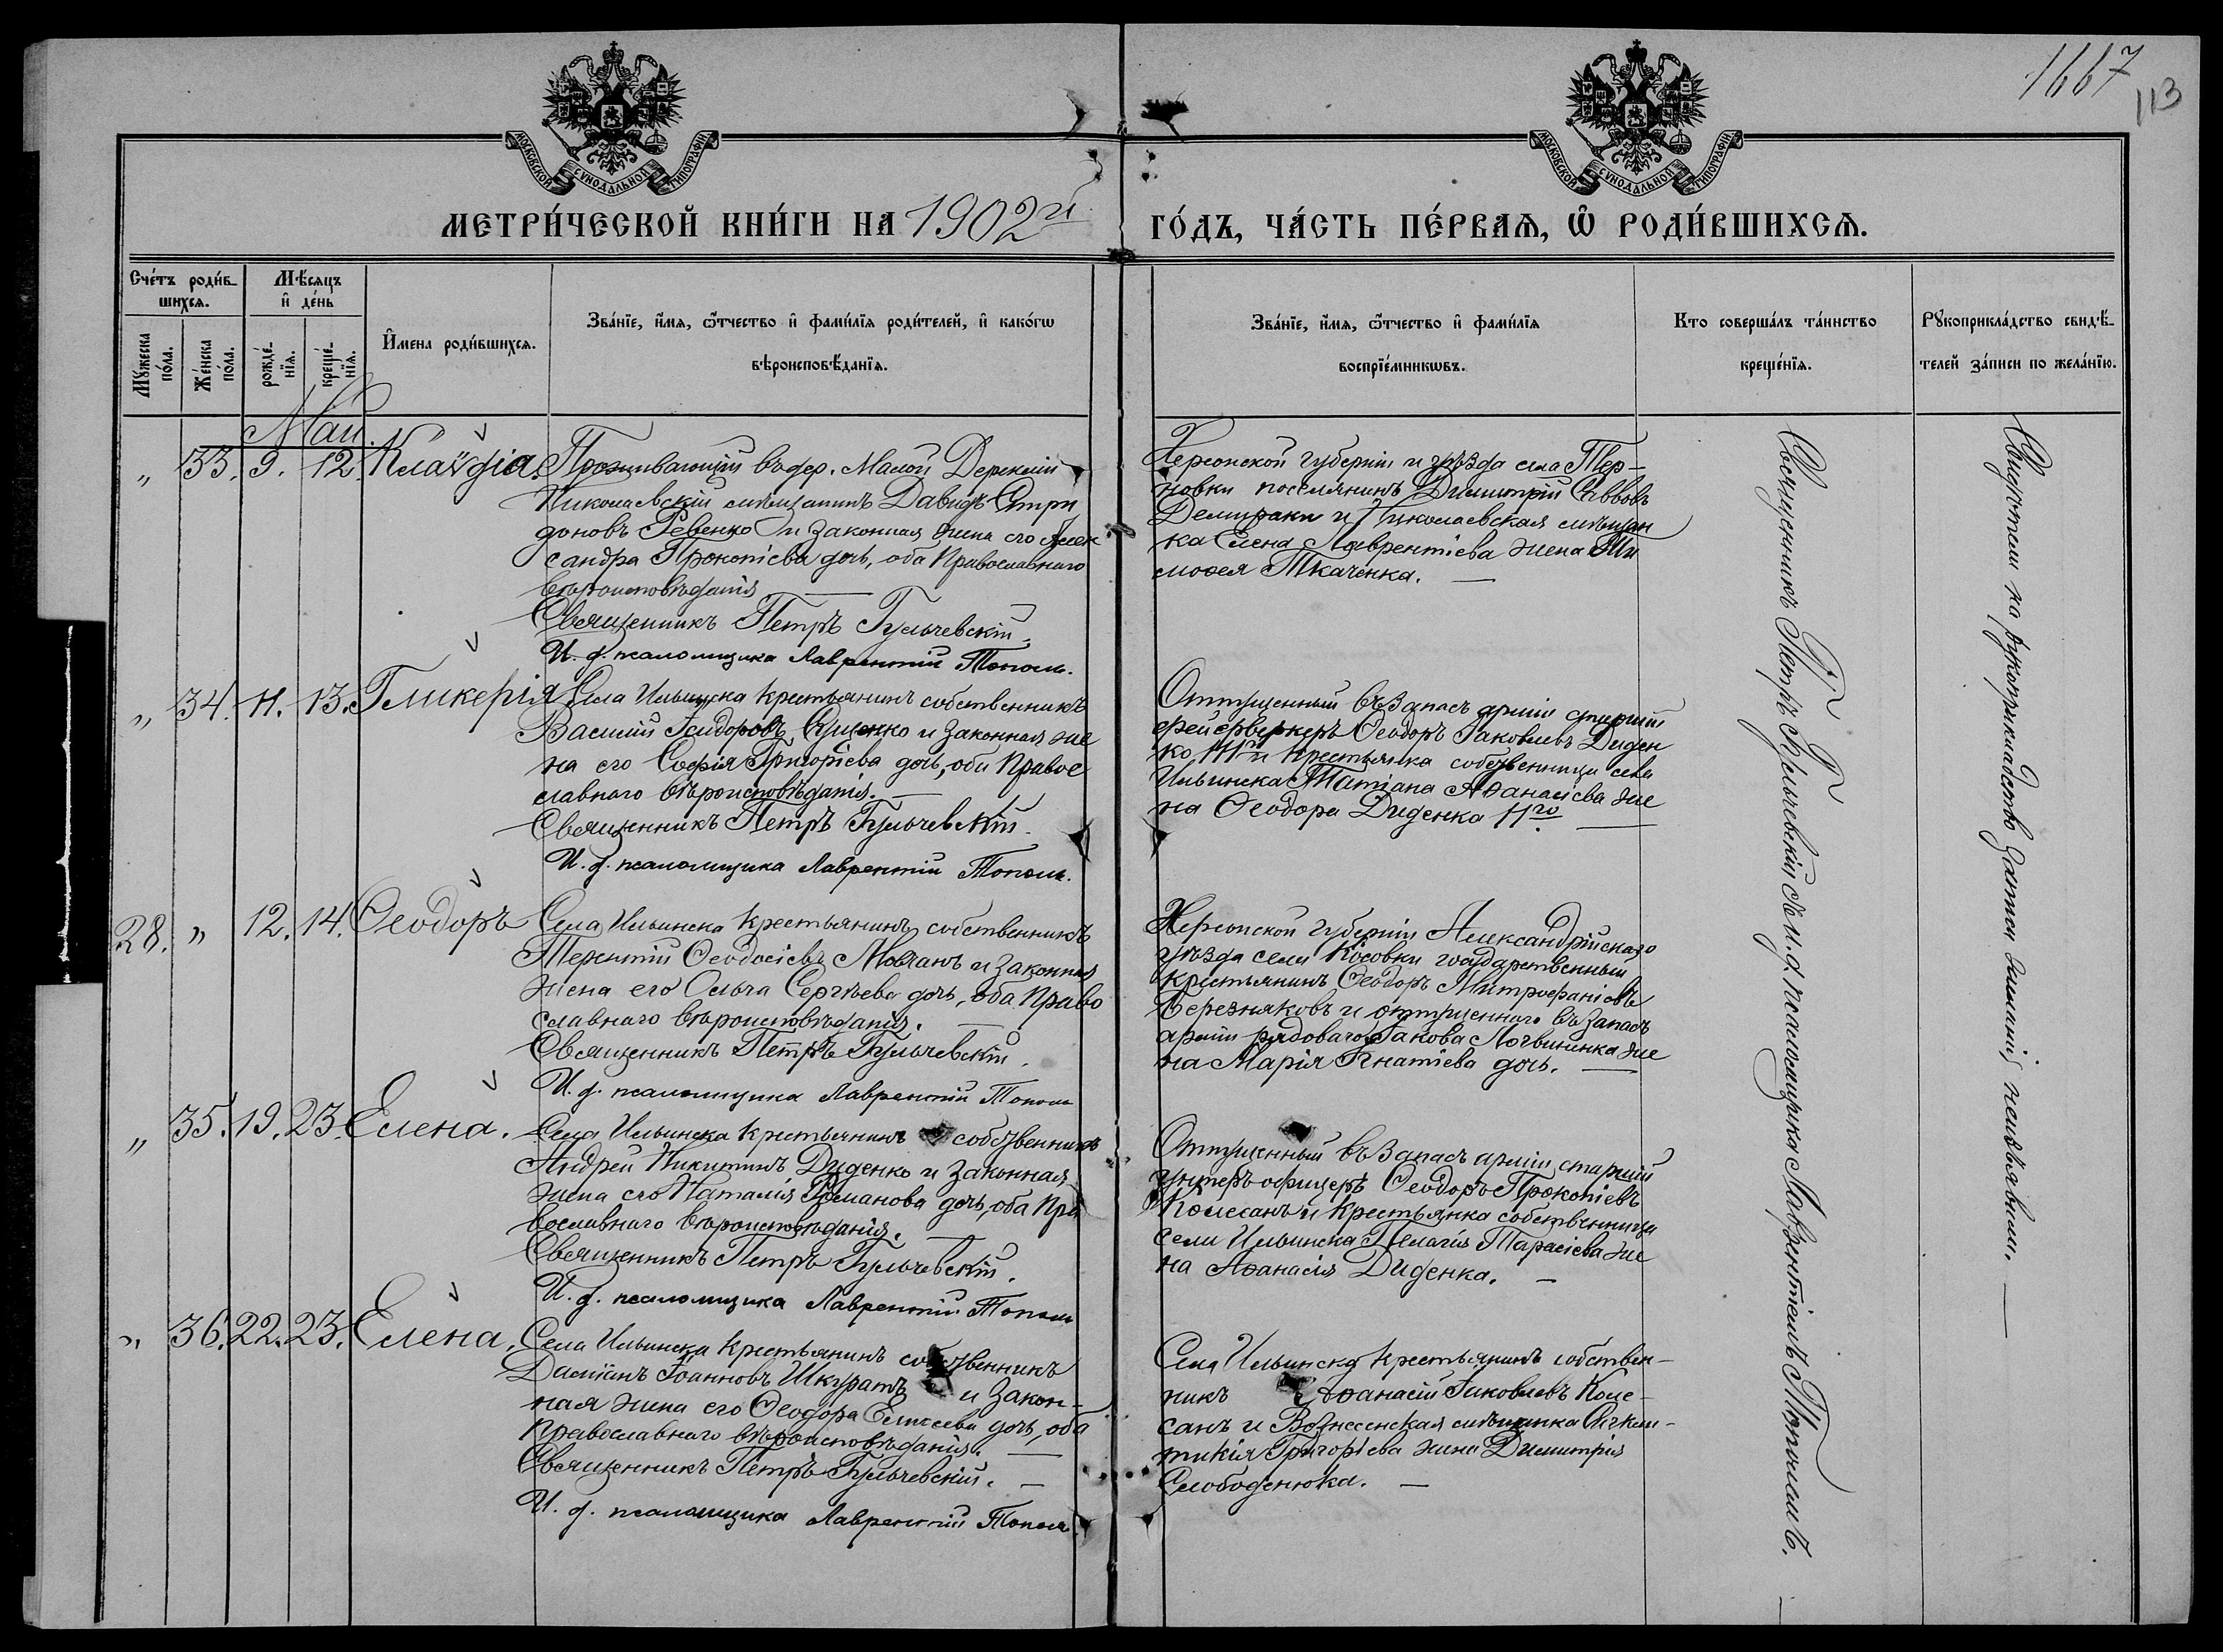 1667
113
МОСКОВСКОЙ СѴНОДАЛЬНОЙ ТИПОГРАФІИ
МОСКОВСКОЙ СѴНОДАЛЬНОЙ ТИПОГРАФІИ
МЕТРИ́ЧЕСКОЙ КНИ́ГИ НА 1902й
ГО́ДЪ, ЧА́СТЬ ПЕ́РВАѦ, Ѡ РОДИ́ВШИХСѦ.
Сче́тъ роди́в-
шихсѧ.
Мѣ́сяцъ
и҆ де́нь
Мꙋ́жеска по́ла.
Же́нска по́ла.
рожде́-
нїѧ.
креще́-
нїѧ.
И҆́мена роди́вшихсѧ.
Зва́нїе, и҆́мѧ, ѻ҆́тчество и҆ фами́лїѧ роди́телей, и҆ како́гѡ
вѣроисповѣ́данїѧ.
Зва́нїе, и҆́мѧ, ѻ҆́тчество и҆ фами́лїѧ
воспрїе́мникѡвъ.
Кто соверша́лъ та́инство
креще́нїѧ.
Рꙋкоприкла́дство свидѣ́-
телей за́писи по жела́нїю.
Май.
„ 33. 9. 12. Клаѵдія.
Проживающій въ дер. Малой Дерекліи
Николаевскій мѣщанинъ Давидъ Спири
доновъ Ревенко и законная жена его Алек
сандра Прокопіева дочь, оба Православнаго
вѣроисповѣданія
Священникъ Петръ Гульчевскій.
И. д. псаломщика Лаврентій Тополь.
Херсонской губерніи и уѣзда села Тер-
новки поселянинъ Димитрій Саввовъ
и Николаевская мѣщан
ка Елена Лаврентіева жена Ти
моѳея Ткаченка.
„ 34. 11. 13. Гликерія
Села Ильинска крестьянинъ собственникъ
Василій Исидоровъ Ющенко и законная же
на его Софія Григоріева дочь, оба Право
славнаго вѣроисповѣданія.
Священникъ Петръ Гульчевскій.
И. д. псаломщика Лаврентій Тополь.
Отпущенный въ запасъ арміи старшій
фейерверкеръ Ѳеодоръ Іаковлевъ Диден
ко и крестьянка собственница села
Ильинска Татіана Аѳанасіева же
на Ѳеодора Диденка
28. „ 12. 14. Ѳеодоръ
Села Ильинска крестьянинъ собственникъ
Терентій Ѳеодосіевъ Мовчанъ и законная
жена его Ольга Сергѣева дочь, оба Право
славнаго вѣроисповѣданія.
Священникъ Петръ Гульчевскій.
И. д. псаломщика Лаврентій Тополь
Херсонской губерніи Александрійскаго
уѣзда села Косовки государственный
крестьянинъ Ѳеодоръ Митрофаніевъ
Березняковъ и отпущеннаго въ запасъ
арміи рядоваго Іакова Логвиненка же
на Марія Игнатіева дочь.
„ 35. 19. 23. Елена.
Села Ильинска крестьянинъ собственникъ
Андрей Никитинъ Диденко и законная
жена его Наталія Романова дочь, оба Пра
вославнаго вѣроисповѣданія.
Священникъ Петръ Гульчевскій.
И. д. псаломщика Лаврентій Тополь
Отпущенный въ запасъ арміи старшій
унтеръ-офицеръ Ѳеодоръ Прокопіевъ
Колесанъ и крестьянка собственница
села Ильинска Пелагія Тарасіева же
на Аѳанасія Диденка.
„ 36. 22. 23. Елена.
Села Ильинска крестьянинъ собственникъ
Даміанъ Іоанновъ Шкуратъ и закон-
ная жена его Ѳеодора Елисеева дочь, оба
Православнаго вѣроисповѣданія.
Священникъ Петръ Гульчевскій.
И. д. псаломщика Лаврентій Тополь
Села Ильинска крестьянинъ собствен-
никъ Аѳанасій Іаковлевъ Коле-
санъ и Вознесенская мѣщанка Синкли-
тикія Григоріева жена Димитрія
Слободенюка.
Священникъ Петръ Гульчевскій съ и. д. псаломщика Лаврентіемъ Тополемъ.
Свидѣтели на рукоприкладство записи желанія не изъявили.